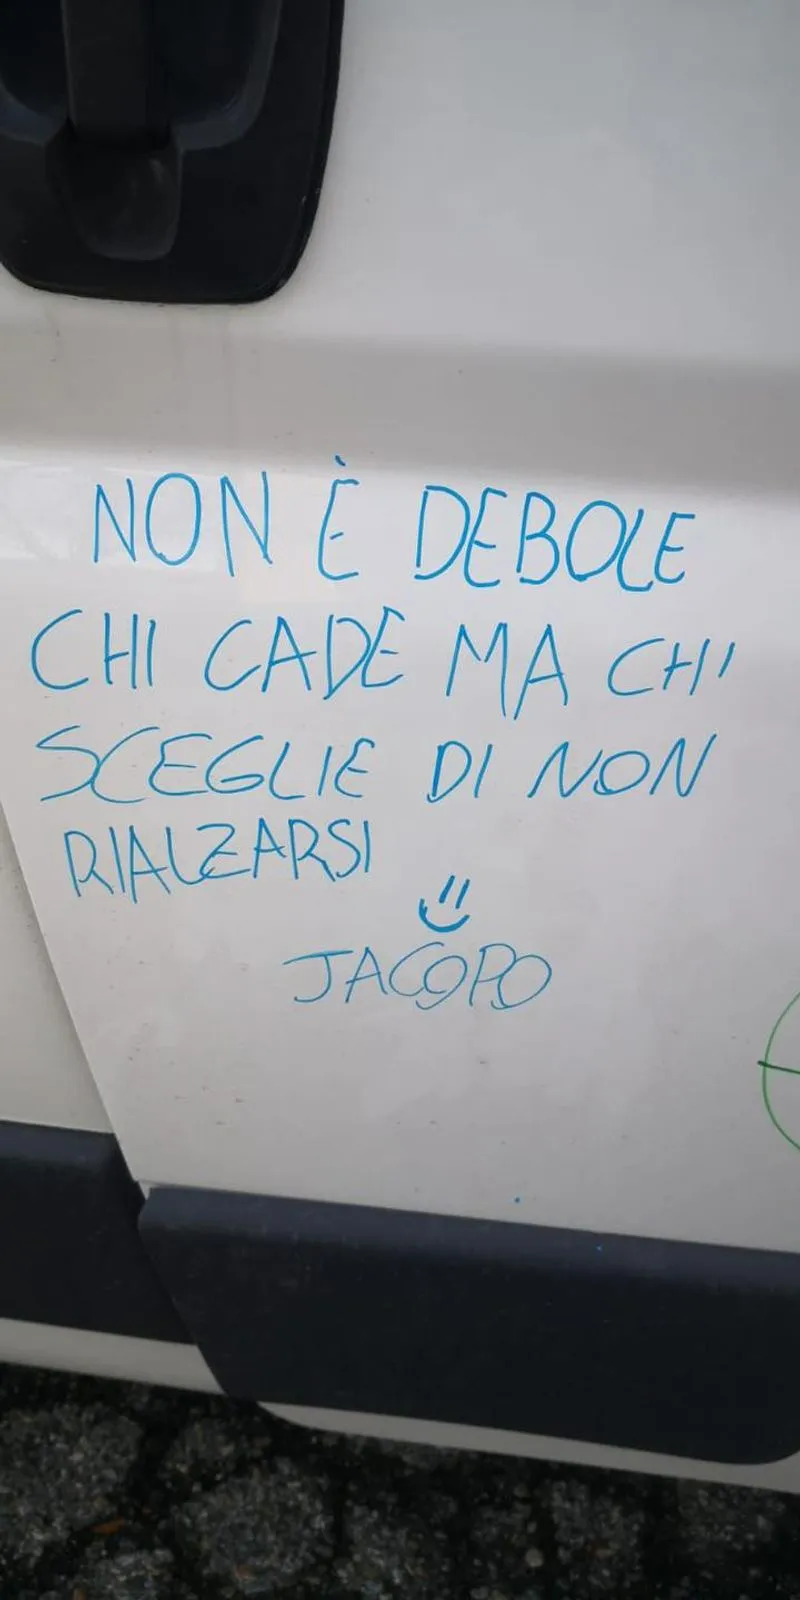 NON È DEBOLE
CHI CADE MA CHI
SCEGLIE DI NON
RIALZARSI
JACOPO